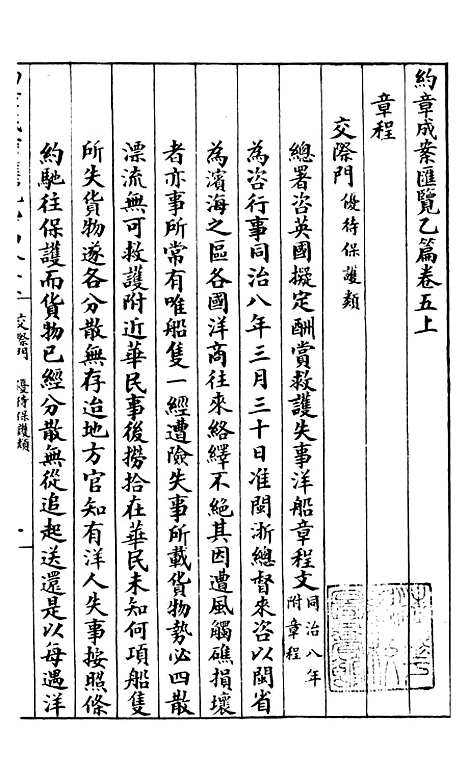 約章成案匯覽乙篇卷五上
章程
交際門 優待保護類
總署咨英國擬定酬賞救護失事洋船章程文 同治八年附章程
為咨行事同治八年三月三十日准閩浙總督來咨以閩省
為濱海之區各國洋商往來絡繹不絕其因遭風觸礁損壞
者亦事所常有唯船隻一經遭險失事所載貨物勢必四散
漂流無可救護附近華民事後撈拾在華民未知何項船隻
所失貨物遂各分散無存迨地方官知有洋人失事按照條
約馳往保護而貨物已經分散無從追起送還是以每遇洋
交際門 優待保護類 一